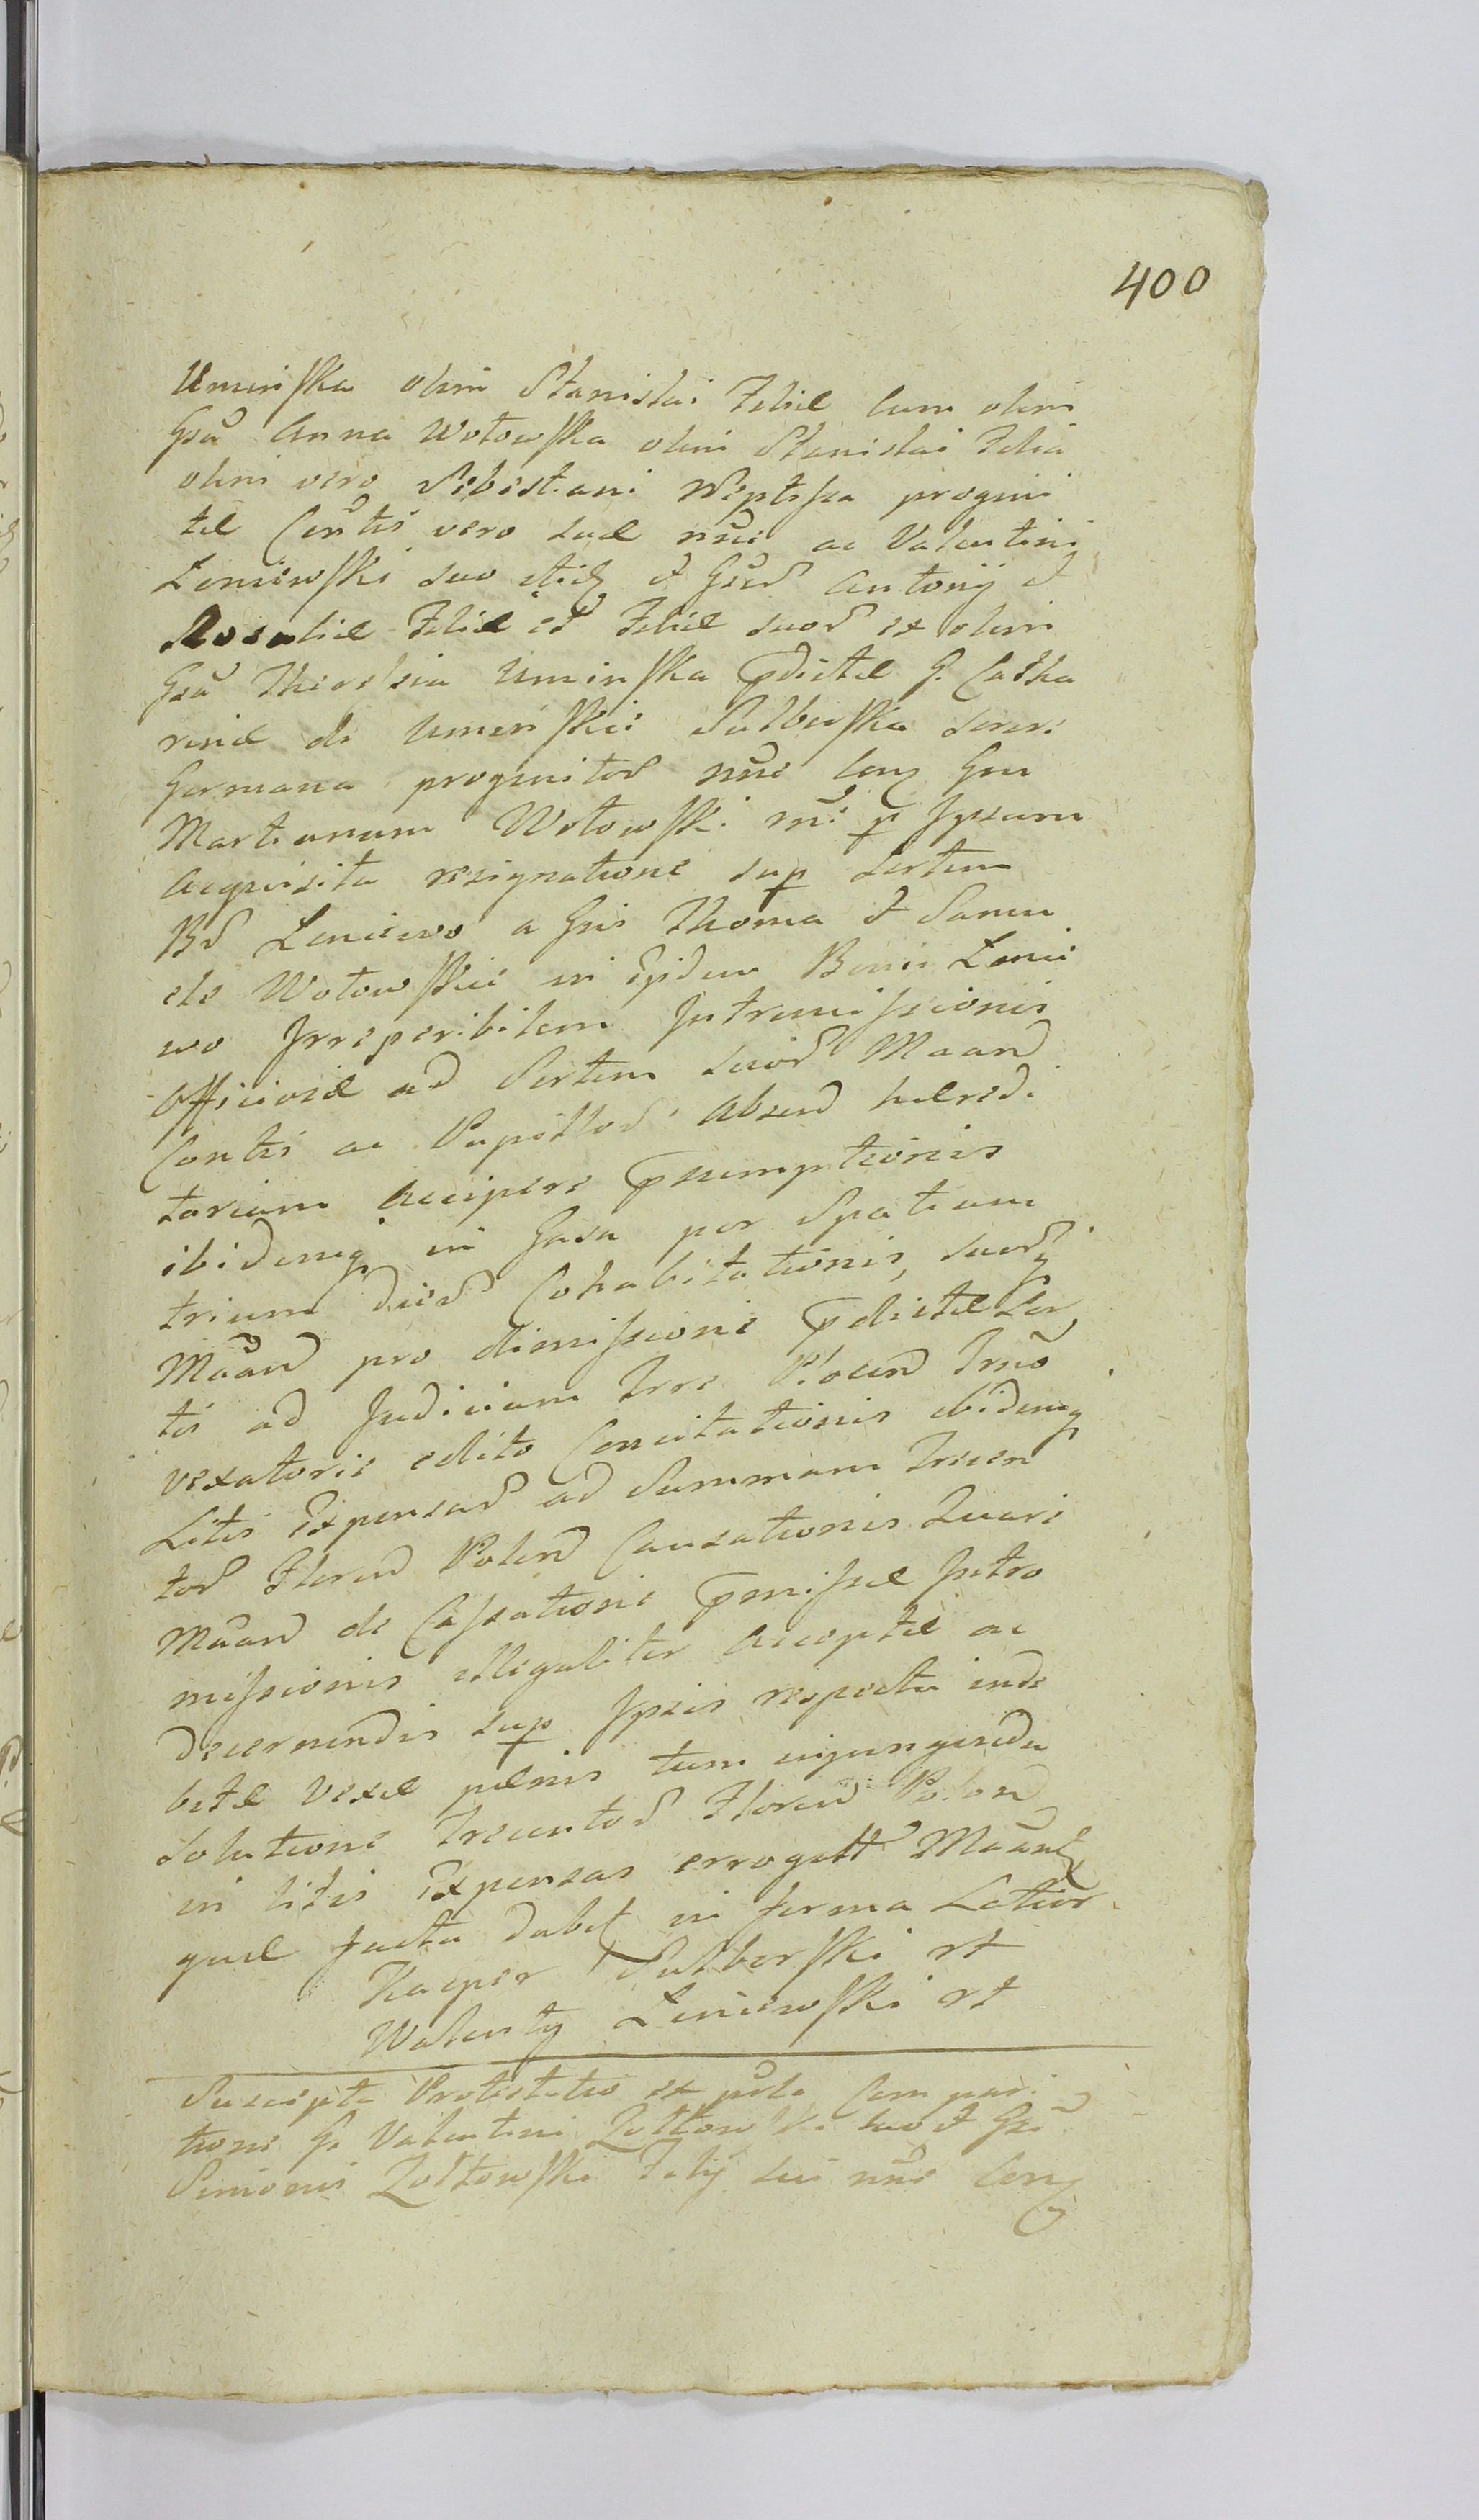 400
Uminska olim Stanislai Filiæ cum olim
Gsā Anna Wołowska olim Stanislai Filia
olim vero Sebestiani Neptissa progeni
tæ Contis vero suæ nōie ac Valentini
Leniewski suo et Gsd Antonij et
Rosaliæ Filiæ et Filiæ suor ex olim
Gsā Theressia Uminska pdictæ G. Catha
rinæ de Uminskie Sulborska sorore
Germana progenitor nōie
Martianum Wołowski p Ipsum
Acquisita resignatione sup Sortem
Bd Leniewo a Gsis Thoma et Samu
ele Wołowskie in ejsdem Bonis Lenie
wo Irreperibilem Intromissionis
Officiosæ ad Sortem suor Maand
Contis ac Pupillor Absend hæredi
tarium Accipere psumptionis
ibidemq in Gasa per Spatium
trium dier Cohabitationis, suorq
Maand pro dimissione pdictæ Sor
tis ad Judicium Trre Plocen Trmō
vexatorie edito Concitationis ibidemq
Litis Expensar ad Summam Trecen
tor Floren Polon Causationis Quare
Maand de Cassatione pmissæ Intro
missionis illegaliter Acceptæ ac
decernendis sup Ipsis respectu inde
bitæ vexæ pænis tum injungenda
Solutione Trecentor Floren Polon
in litis Expensas errogatt Maand
quæ facta dabit in forma Latior
Kacper Sulborski rt
Walenty Leniewski rt
Suscepta Protestatio ex psli Compari
tione G. Valentini Zołtowski suo et Gsi
Simonis Zołtowski Filij sui nōie